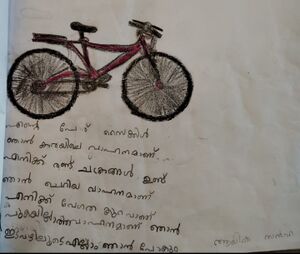 എന്റെ പേര് സൈക്കിൾ
ഞാൻ കരയിലെ വാഹനമാണ്
എനിക്ക് രണ്ട് ചക്രങ്ങൾ ഉണ്ട്
ഞാൻ ചെറിയ വാഹനമാണ്
എനിക്ക് വേഗത കുറവാണ്
പുകയില്ലാത്തവാഹനമാണ് ഞാൻ
ഇടവഴിയിലൂടെഎല്ലാം ഞാൻ പോകും